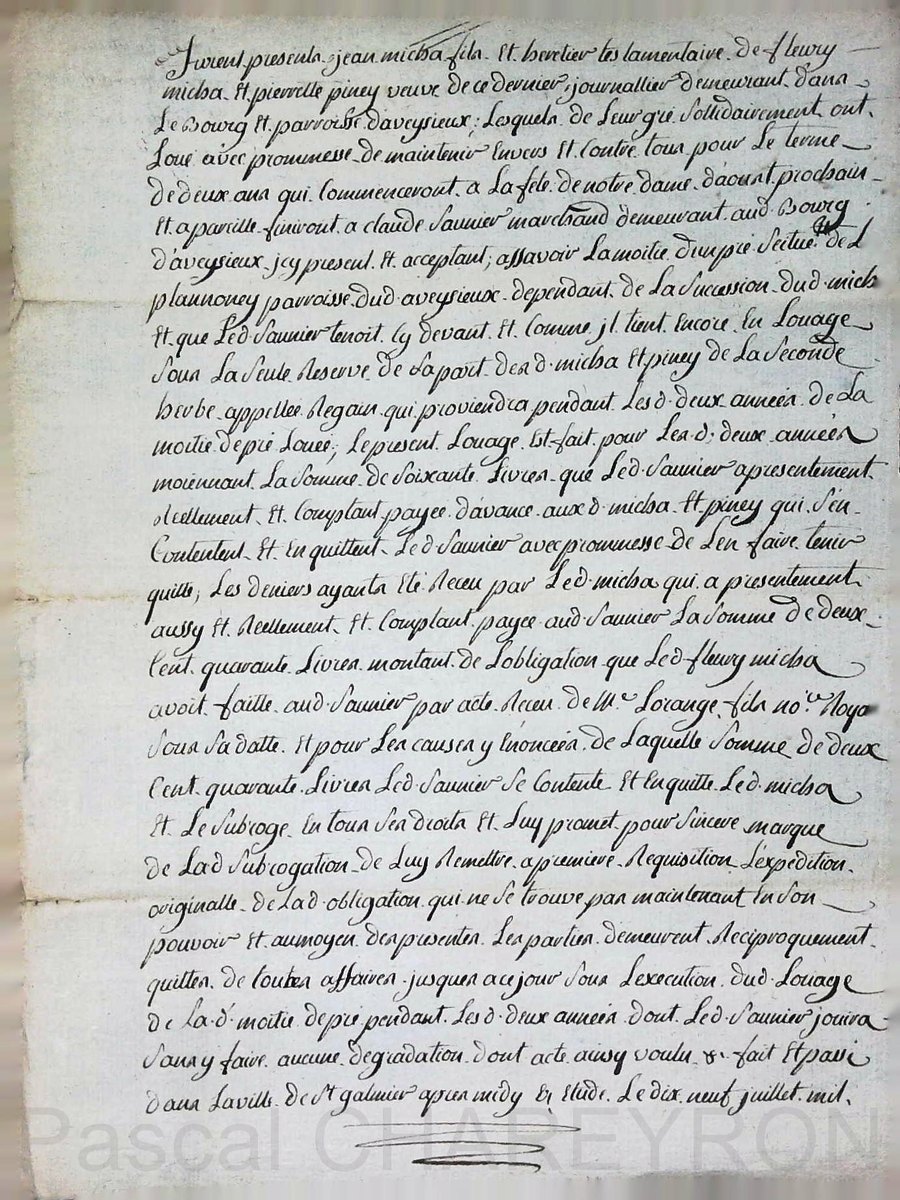 Furent presents jean micha fils Et heretier testamentaire de fleury
micha Et pierrette piney veuve de ce dernier, journallier demeurant dans
Le Bourg Et parroisse daveysieux; Lesquels de Leur gré Sollidairement ont
Loué avec prommesse de maintenir Envers Et Contre tous pour Le terme
de deux ans qui Commenceront a La fete de notre dame d'aoust prochain
Et a pareille finiront a claude Saunier marchand demeurant aud Bourg
d'aveysieux jcy present Et acceptant; assavoir La moitié d'un pré Scitué de L
plannoney parroisse dud aveysieux dependant de La Succession dud mich
Et que Led Saunier tenoit Cy devant Et Comme jl tient Encore En Louage
Sous La Seule Reserve de La part desd micha Et piney de La Seconde
herbe appellée Regain qui proviendra pendant Lesd deux années de La
moitié de pré Louée; Le present Louage Est fait pour Lesd; deux années
moiennant La Somme de Soixante Livres que Led Saunier a presentement
Reellement Et Comptant payée d'avance aux d micha Et piney qui S'en
Contentent Et En quittent Led Saunier avec prommesse de L'en faire tenir
quitte; Les deniers ayants Eté Receu par Led micha qui a presentement
aussy Et Reellement Et Comptant payée aud Saunier La Somme de deux
Cent quarante Livres montant de Lobligation que Led fleury micha
avoit faitte aud Saunier par acte Receu de Me Lorange fils nore Roya
Sous Sa datte Et pour Les causes y Enoncées de Laquelle Somme de deux
Cent quarante Livres Led Saunier Se Contente Et En quitte Led micha
Et Le Subroge En tous Ses droits Et Luy promet pour Sincere marque
de Lad Subrogation de Luy Remettre a premiere Requisition L'expedition
originalle de Lad obligation qui ne Se trouve pas maintenant En Son
pouvoir Et au moyen des presentes Les parties demeurent Reciproquement
quittes de toutes affaires jusques a ce jour Sous L'execution dud Louage
de La d moitié de pré pendant Lesd deux années dont Led Saunier jouira
Sans y faire aucune degradation dont acte ainsy voulu & fait Et passé
dans La ville de St galmier apres midy Et Etude Le dix neuf juillet mil
Pascal CHAREYRON